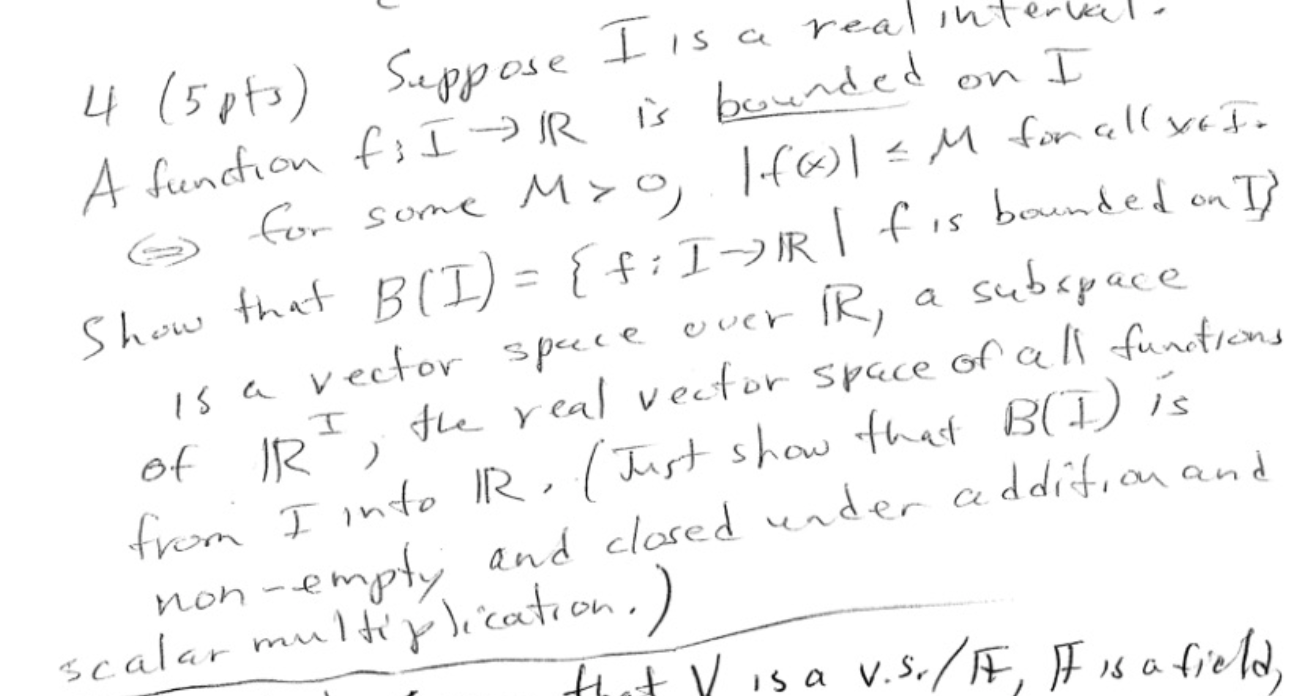 4 (5pts) Suppose I is a real interval.
A function f: I → ℝ is bounded on I
⇔ for some M > 0, |f(x)| ≤ M for all x∈I.
Show that B(I) = { f: I → ℝ | f is bounded on I}
is a vector space over ℝ, a subspace
of ℝ^I, the real vector space of all functions
from I into ℝ. (Just show that B(I) is
non-empty and closed under addition and
scalar multiplication.)
that V is a v.s./𝔽, 𝔽 is a field,